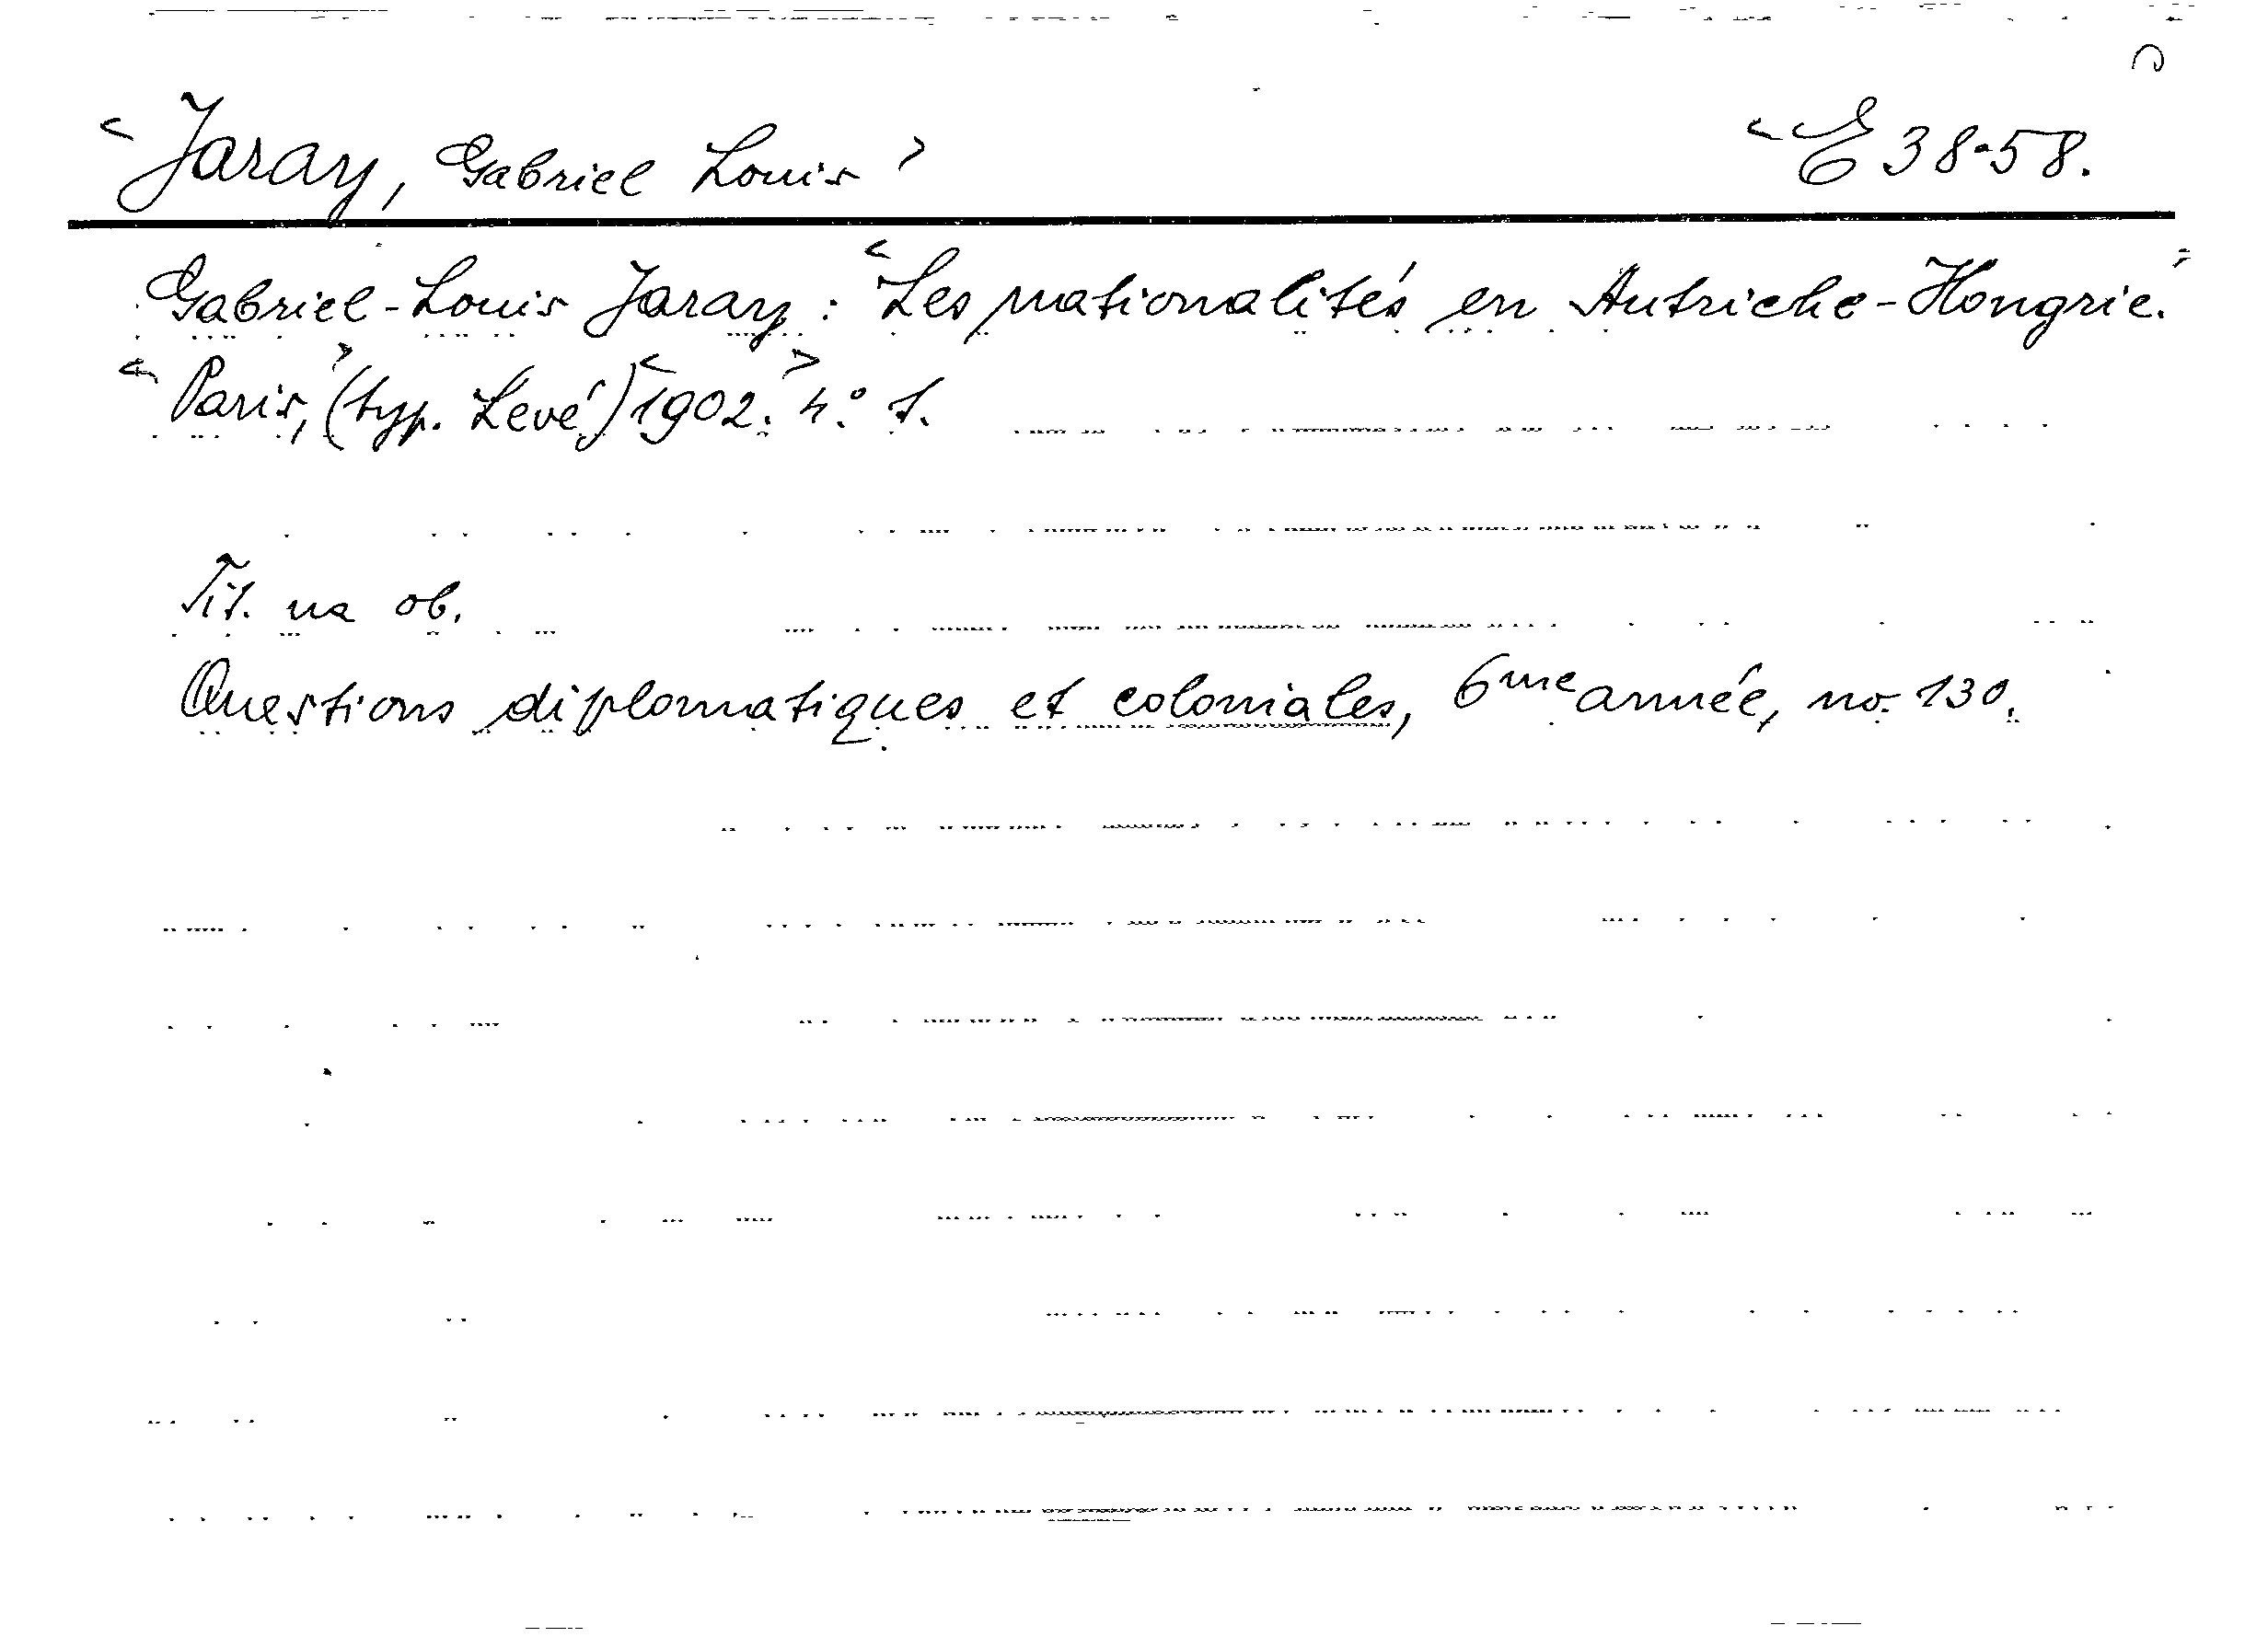 <Jaray, Gabriel Louis> <E 38-58.
Gabriel-Louis Jaray: <Les nationalités en Autriche-Hongrie.>
<Paris,> (typ. Levé) <1902.> 4.º 1.
Tit. na ob.
Questions diplomatiques et coloniales, 6me année, no. 130.